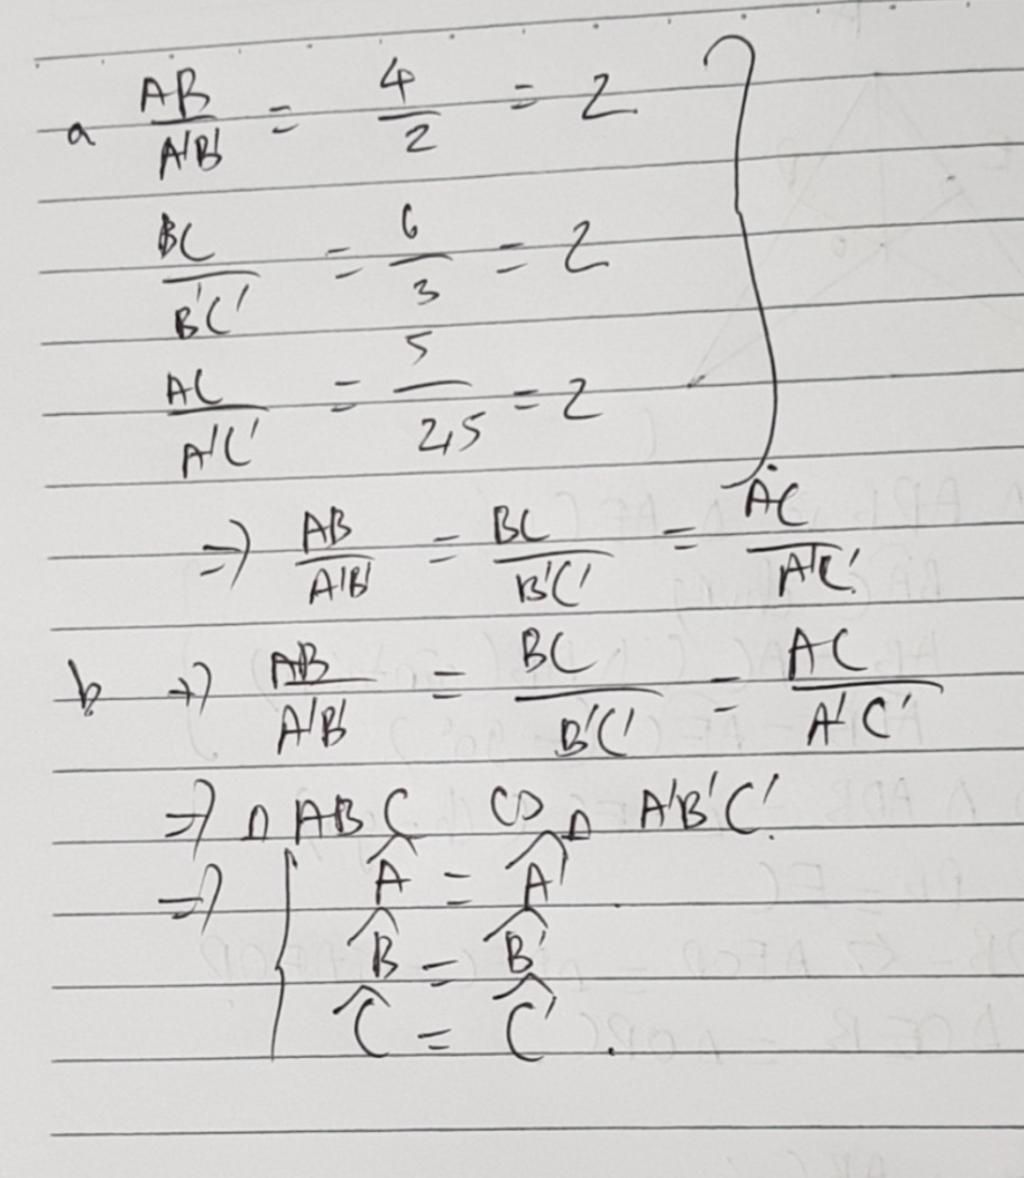 a AB/A'B' = 4/2 = 2
BC/B'C' = 6/3 = 2
AC/A'C' = 5/2,5 = 2
=> AB/A'B' = BC/B'C' = AC/A'C'
b, => AB/A'B' = BC/B'C' = AC/A'C'
=> Δ ABC ∽ Δ A'B'C'.
=> { Â = Â'
B̂ = B̂'
Ĉ = Ĉ'.